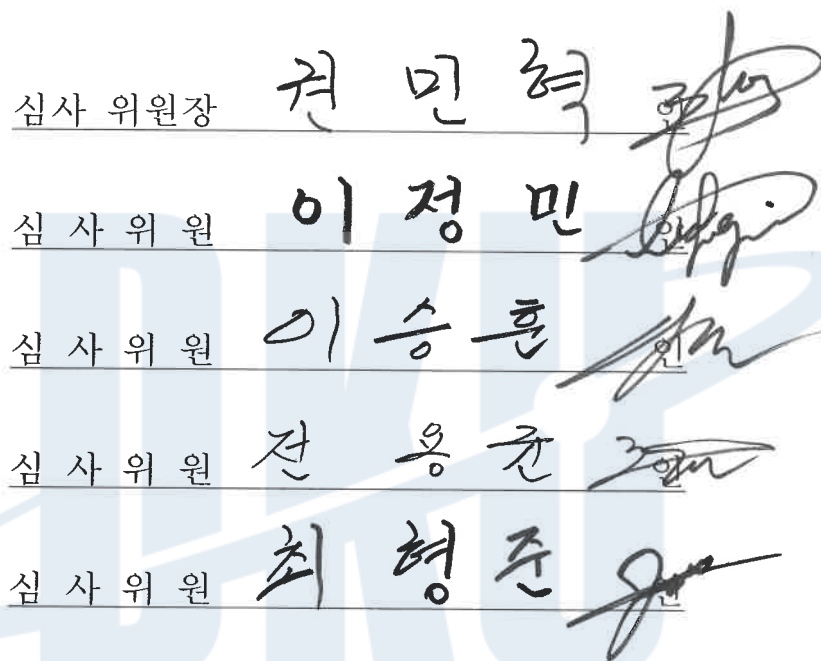 심사 위원장 권 민 혁 인
심 사 위 원 이 정 민 인
심 사 위 원 이 승 훈 인
심 사 위 원 전 용 균 인
심 사 위 원 최 형 준 인
DKU